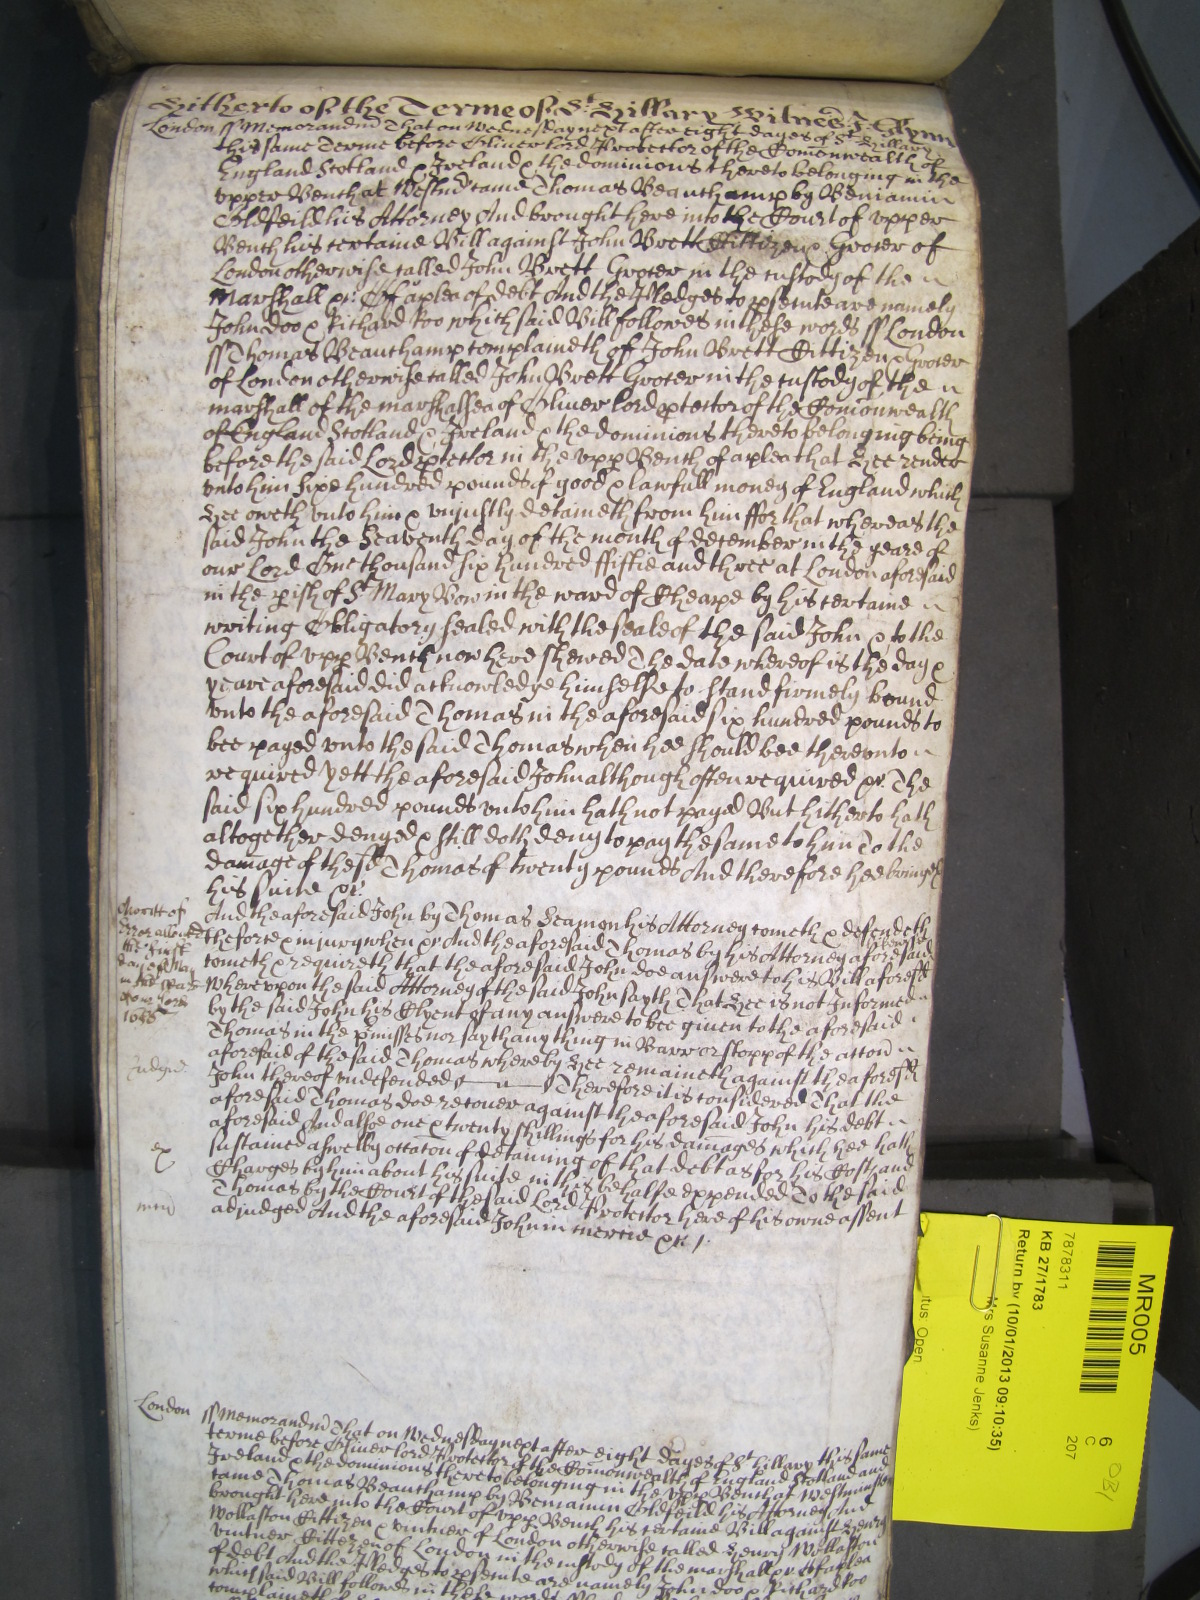 Hitherto of the Terme of St Hillary Witnes J: Glynn
London ss Memorandm That on Wednesday next after eight dayes of St Hillary
this same Terme before Oliver lord Protector of the Comonwealth of
England Scotland & Ireland & the dominions thereto belonging in the
vpper Bench at Westmr came Thomas Beauchamp by Beniamin
Oldfeild his Attorney And brought here into the Court of vpper
Bench his certaine Bill against John Brett Cittizen & Grocer of
London otherwise called John Brett Grocer in the custody of the
Marshall &c Of a plea of debt And the Pledges to psecute are namely
John doo & Richard Roo which said Bill followes in these words ss London
ss Thomas Beauchamp complaineth of John Brett Cittizen & Grocer
of London otherwise called John Brett Grocer in the custody of the
marshall of the marshallsea of Oliver lord ptector of the Comonwealth
of England Scotland & Ireland & the dominions thereto belonging being
before the said Lord ptector in the vpp Bench of a plea that hee render
vnto him Sixe hundred pounds of good & lawfull money of England which
hee oweth vnto him & vnjustly detaineth from him ffor that whereas the
said John the Seaventh day of the month of december in the yeare of
our Lord One thousand six hundred ffiftie and three at London aforesaid
in the pish of St Mary Bow in the ward of Cheape by his certaine
writing Obligatory sealed with the seale of the said John & to the
Court of vpp Bench now here shewed The date whereof is the day &
yeare aforesaid did acknowledge himselfe to stand firmely bound
vnto the aforesaid Thomas in the aforesaid six hundred pounds to
bee payed vnto the said Thomas when hee should bee therevnto
required yett the aforesaid John although often required &c The
said six hundred pounds vnto him hath not payed But hitherto hath
altogether denyed & still doth deny to pay the same to him To the
damage of the sd Thomas of twenty pounds And therefore hee bringeth
his suite &c
And the aforesaid John by Thomas Seamon his Attorney cometh & defendeth
the force & injury when &c And the aforesaid Thomas by his Attorney aforesaid
cometh & requireth that the aforesaid John doe answere to his Bill aforesd
Wherevpon the said Attorney of the said John sayth That hee is not Informed
by the said John his Clyent of any answere to bee given to the aforesaid
Thomas in the pmisses nor sayth any thing in Barr or stopp of the accon
aforesaid of the said Thomas whereby hee remaineth against the aforesd
John thereof vndefended Therefore it is considered That the
aforesaid Thomas doe recover against the aforesaid John his debt
aforesaid And alsoe one & twenty shillings for his damages which hee hath
sustained aswell by occacon of detaining of that debt as for his Cost and
Charges by him about his suite in this behalfe expended To the said
Thomas by the Court of the said Lord Protector here of his owne assent
adjudged And the aforesaid John in mercie &c
A writt of
Error allowed
the first
day of May
in the yeare
of our Lord
Judgmt
ex
London ss Memorandm That on Wednesday next after eight dayes of St hillary this same
terme before Oliver lord Protector of the Comonwealth of England Scotland and
Ireland & the dominions thereto belonging in the vpp Bench at Westminster
came Thomas Beauchamp by Beniamin Oldfeild his Attorney And
brought here into the Court of vpp Bench his certaine Bill against Henry
Wollaston Cittizen & vintner of London otherwise called Henry Wollaston
vintner Cittizen of London in the custody of the marshall &c Of a plea
of debt And the Pledges to psecute are namely John doo & Richard Roo
which said Bill followes in these words
complaineth
MR005
7878311
KB 27/1783
Return by (10/01/2013 09:10:35)
Mrs Susanne Jenks)
tus: Open
6
C
207